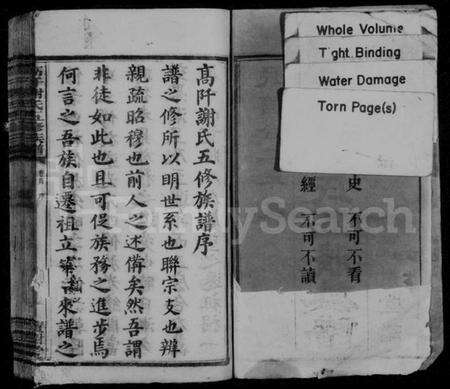 Whole Volume
Tight Binding
Water Damage
Torn Page(s)
史 不可不看
經 不可不讀
高阡謝氏五修族譜序
譜之修所以明世系也聯宗支也辨
親疏昭穆也前人之述備矣然吾謂
非徒如此也且可促族務之進步焉
何言之吾族自遷祖立業以來譜之
FamilySearch